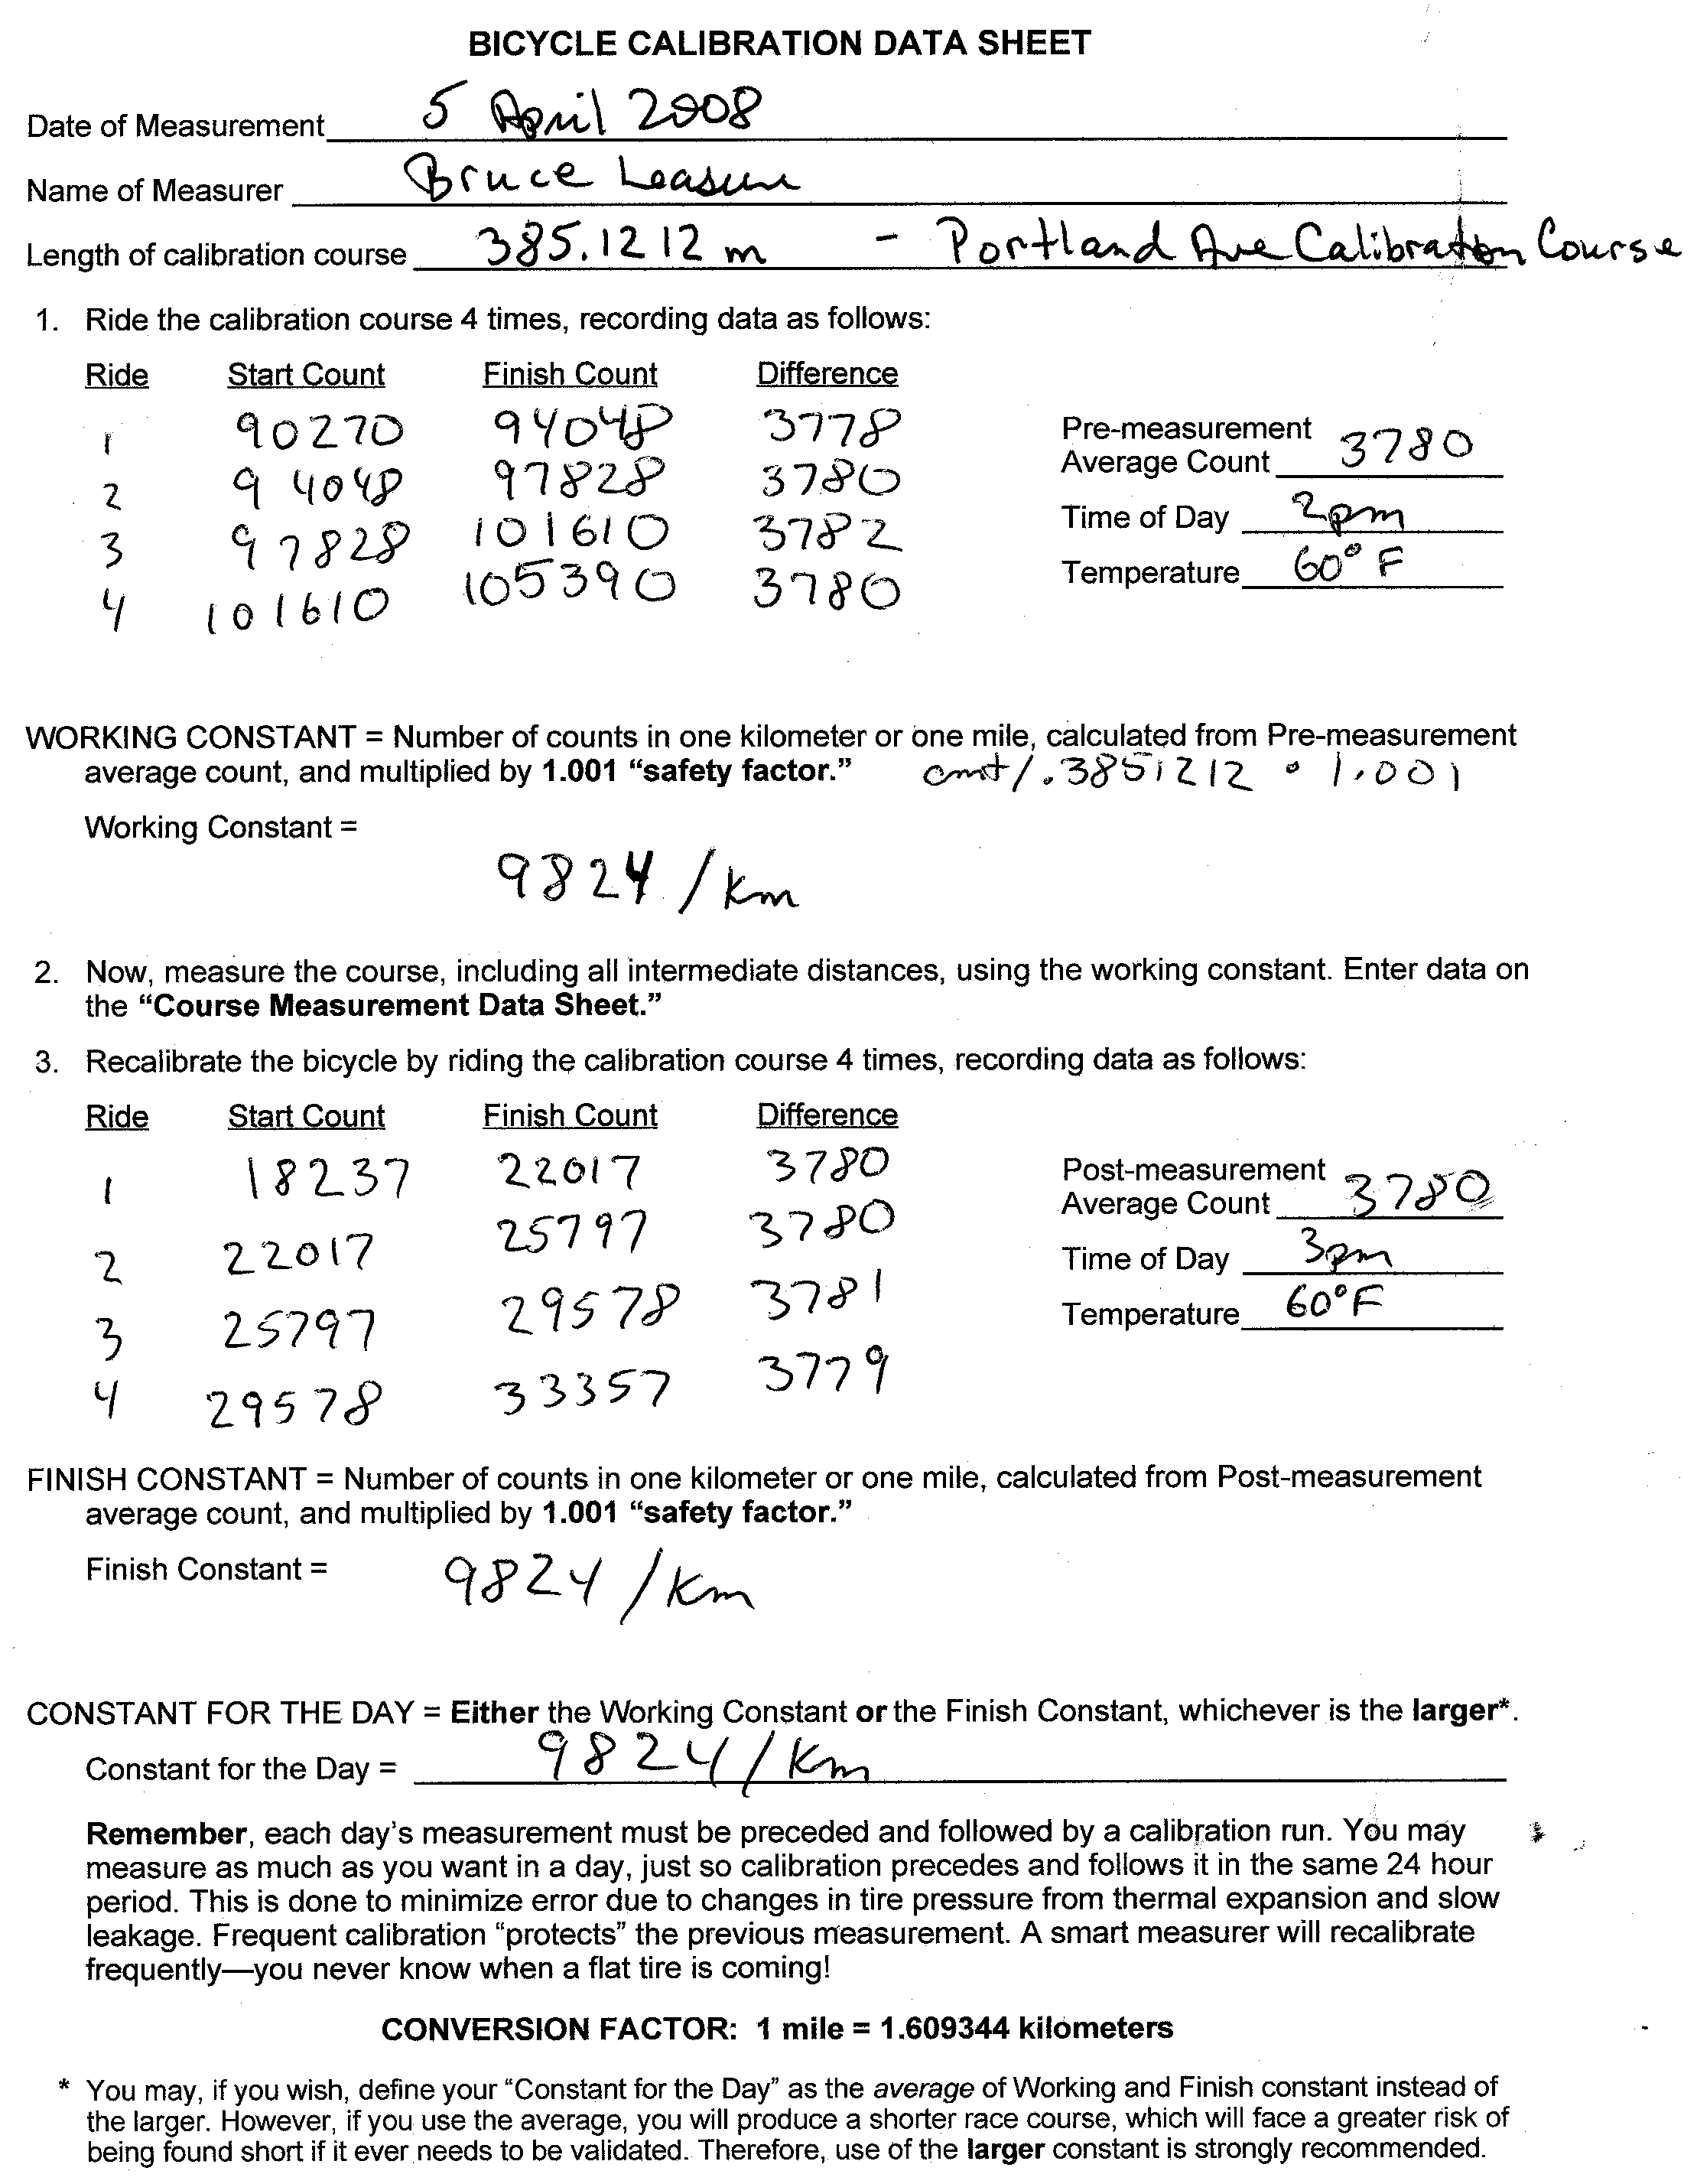 BICYCLE CALIBRATION DATA SHEET
Date of Measurement 5 April 2008
Name of Measurer Bruce Leasure
Length of calibration course 385.1212 m - Portland Ave Calibration Course
1. Ride the calibration course 4 times, recording data as follows:
Ride Start Count Finish Count Difference
1 90270 94048 3778
2 94048 97828 3780
3 97828 101610 3782
4 101610 105390 3780
Pre-measurement
Average Count 3780
Time of Day 2pm
Temperature 60° F
WORKING CONSTANT = Number of counts in one kilometer or one mile, calculated from Pre-measurement
average count, and multiplied by 1.001 “safety factor.” cnt/.3851212 • 1.001
Working Constant =
9824 /km
2. Now, measure the course, including all intermediate distances, using the working constant. Enter data on
the “Course Measurement Data Sheet.”
3. Recalibrate the bicycle by riding the calibration course 4 times, recording data as follows:
Ride Start Count Finish Count Difference
1 18237 22017 3780
2 22017 25797 3780
3 25797 29578 3781
4 29578 33357 3779
Post-measurement
Average Count 3780
Time of Day 3pm
Temperature 60°F
FINISH CONSTANT = Number of counts in one kilometer or one mile, calculated from Post-measurement
average count, and multiplied by 1.001 “safety factor.”
Finish Constant = 9824 /km
CONSTANT FOR THE DAY = Either the Working Constant or the Finish Constant, whichever is the larger*.
Constant for the Day = 9824/km
Remember, each day’s measurement must be preceded and followed by a calibration run. You may
measure as much as you want in a day, just so calibration precedes and follows it in the same 24 hour
period. This is done to minimize error due to changes in tire pressure from thermal expansion and slow
leakage. Frequent calibration “protects” the previous measurement. A smart measurer will recalibrate
frequently—you never know when a flat tire is coming!
CONVERSION FACTOR: 1 mile = 1.609344 kilometers
* You may, if you wish, define your “Constant for the Day” as the average of Working and Finish constant instead of
the larger. However, if you use the average, you will produce a shorter race course, which will face a greater risk of
being found short if it ever needs to be validated. Therefore, use of the larger constant is strongly recommended.